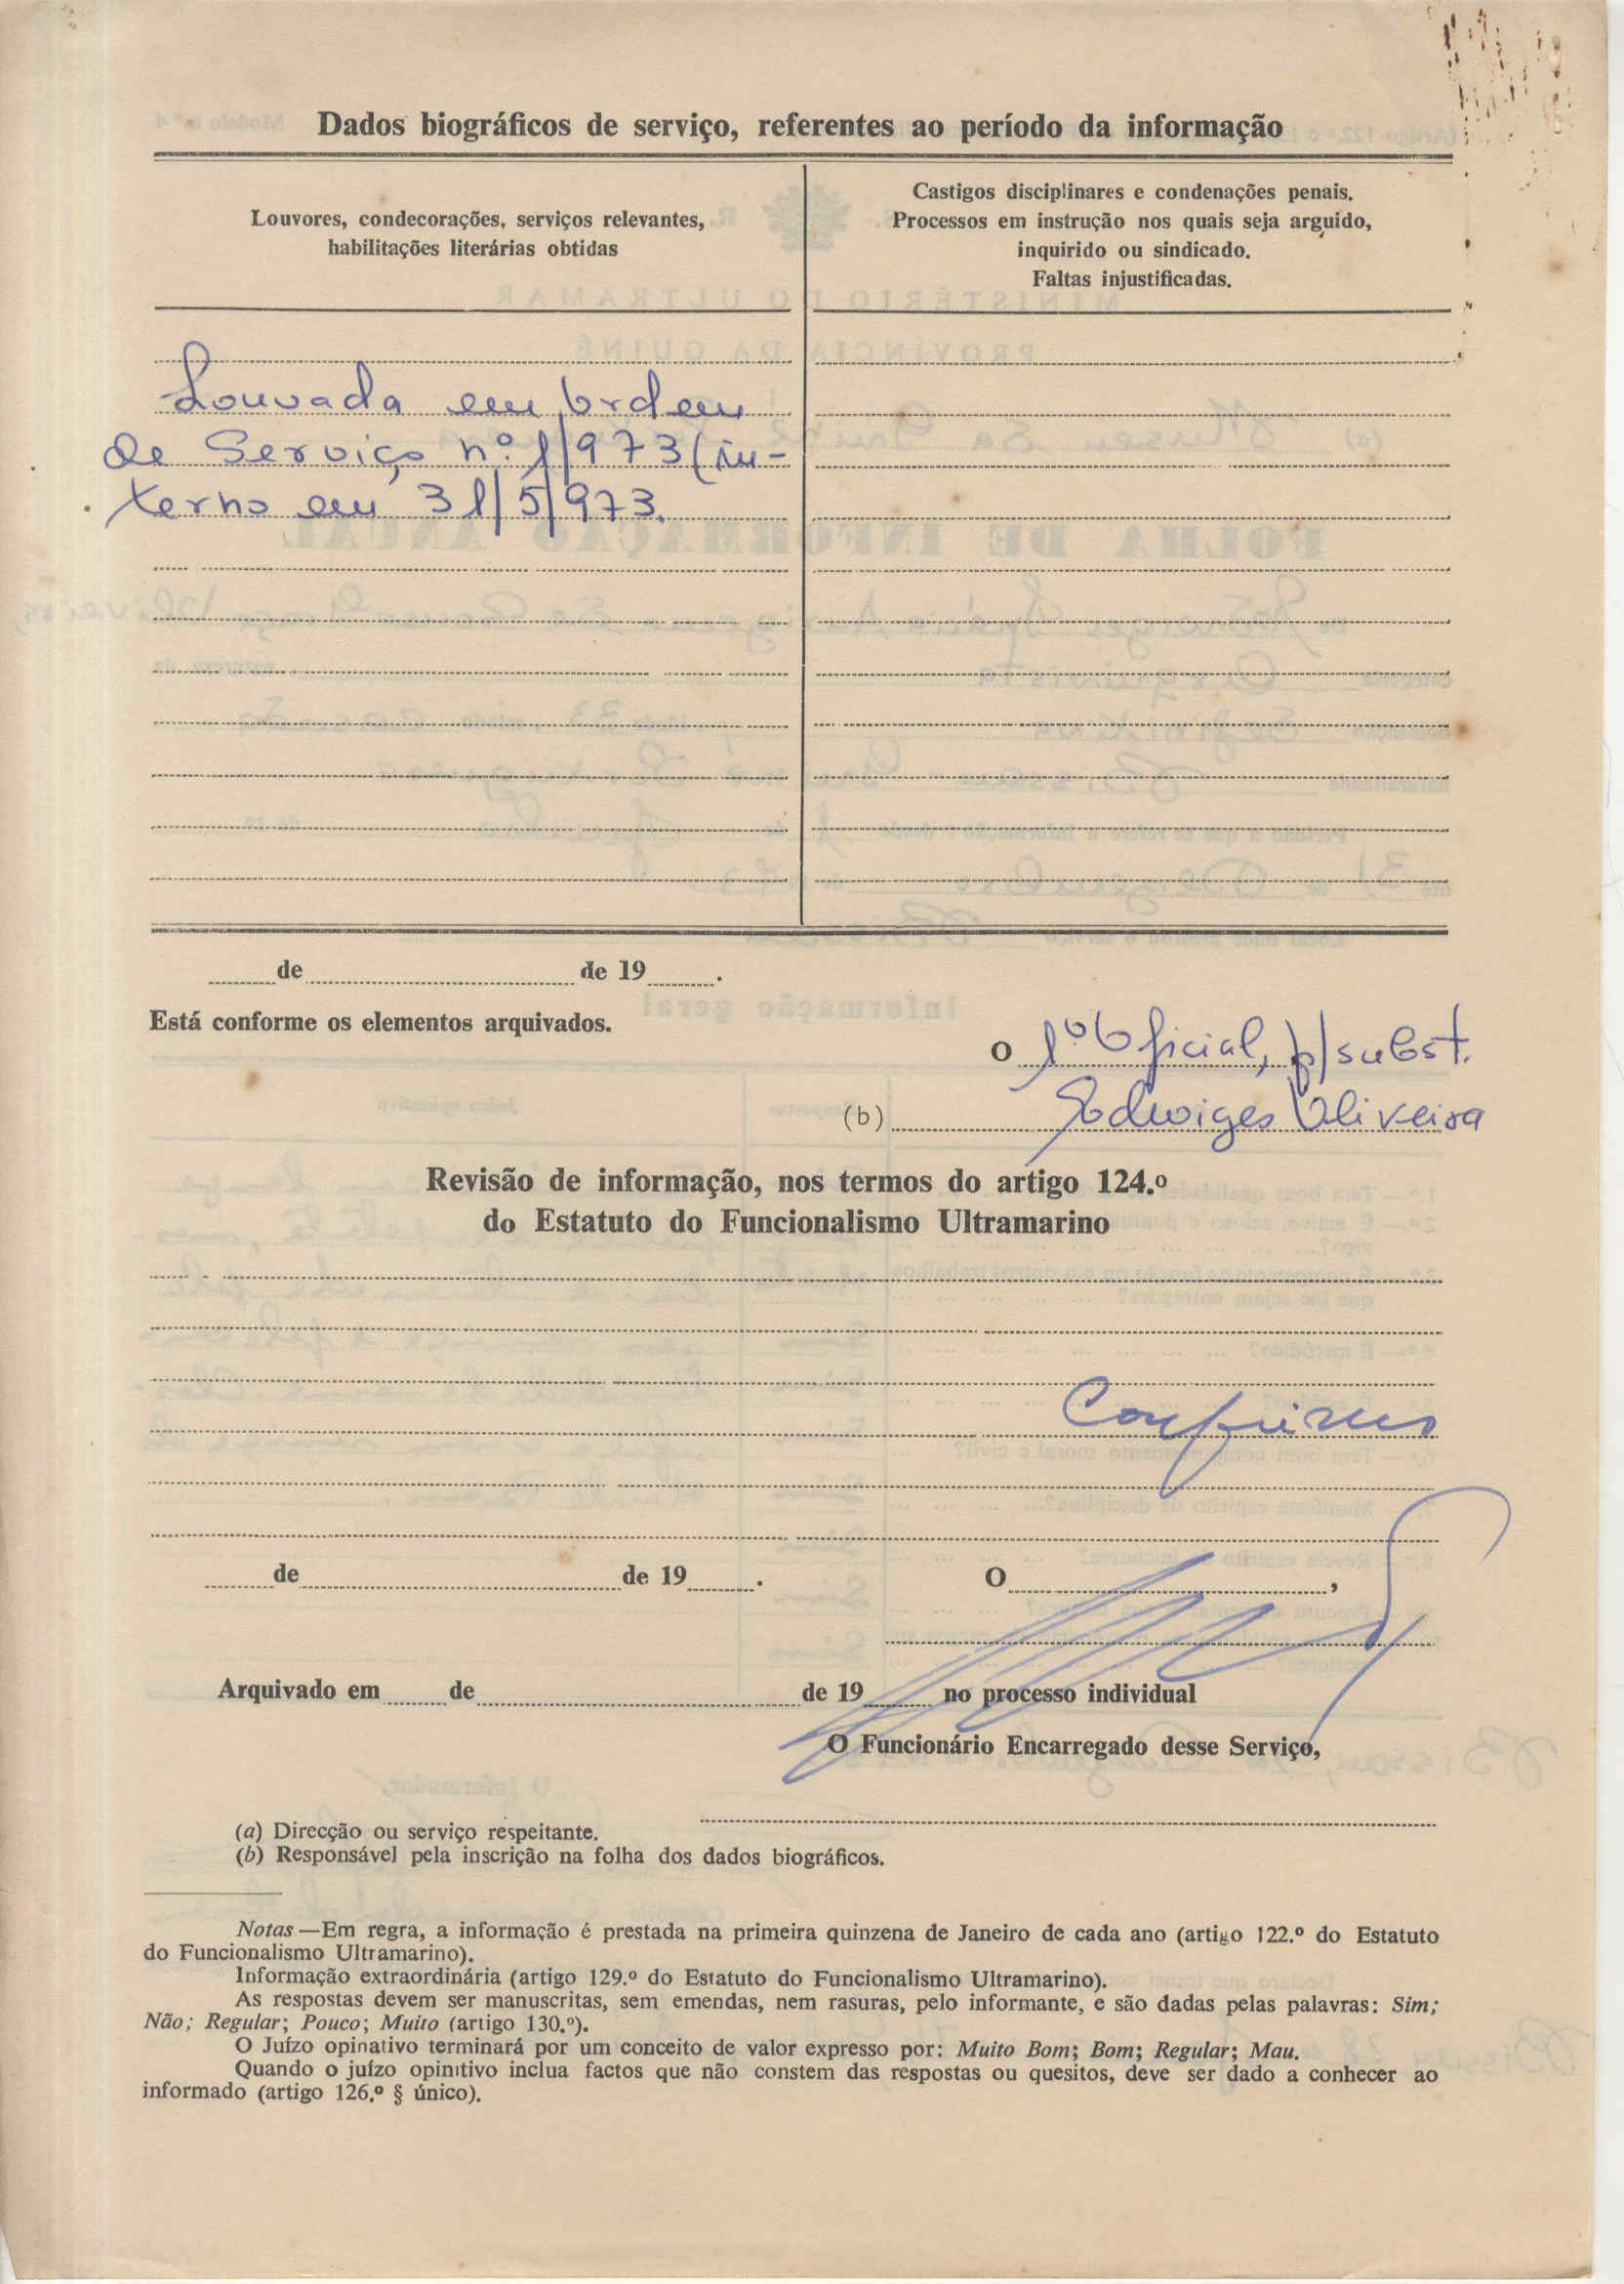 Dados biográficos de serviço, referentes ao período da informação
Louvores, condecorações, serviços relevantes,
habilitações literárias obtidas
Castigos disciplinares e condenações penais.
Processos em instrução nos quais seja arguido,
inquirido ou sindicado.
Faltas injustificadas.
Louvada em ordem
de Serviço nº. 1/973 (in-
terno em 31/5/973.
de de 19 .
Está conforme os elementos arquivados.
O 1º. Oficial, p/subst.
(b) Edwiges Oliveira
Revisão de informação, nos termos do artigo 124.º
do Estatuto do Funcionalismo Ultramarino
Confirmo
de de 19 . O ,
Arquivado em de de 19 no processo individual
O Funcionário Encarregado desse Serviço,
(a) Direcção ou serviço respeitante.
(b) Responsável pela inscrição na folha dos dados biográficos.
Notas—Em regra, a informação é prestada na primeira quinzena de Janeiro de cada ano (artigo 122.º do Estatuto
do Funcionalismo Ultramarino).
Informação extraordinária (artigo 129.º do Estatuto do Funcionalismo Ultramarino).
As respostas devem ser manuscritas, sem emendas, nem rasuras, pelo informante, e são dadas pelas palavras: Sim;
Não; Regular; Pouco; Muito (artigo 130.º).
O Juízo opinativo terminará por um conceito de valor expresso por: Muito Bom; Bom; Regular; Mau.
Quando o juízo opinitivo inclua factos que não constem das respostas ou quesitos, deve ser dado a conhecer ao
informado (artigo 126.º § único).